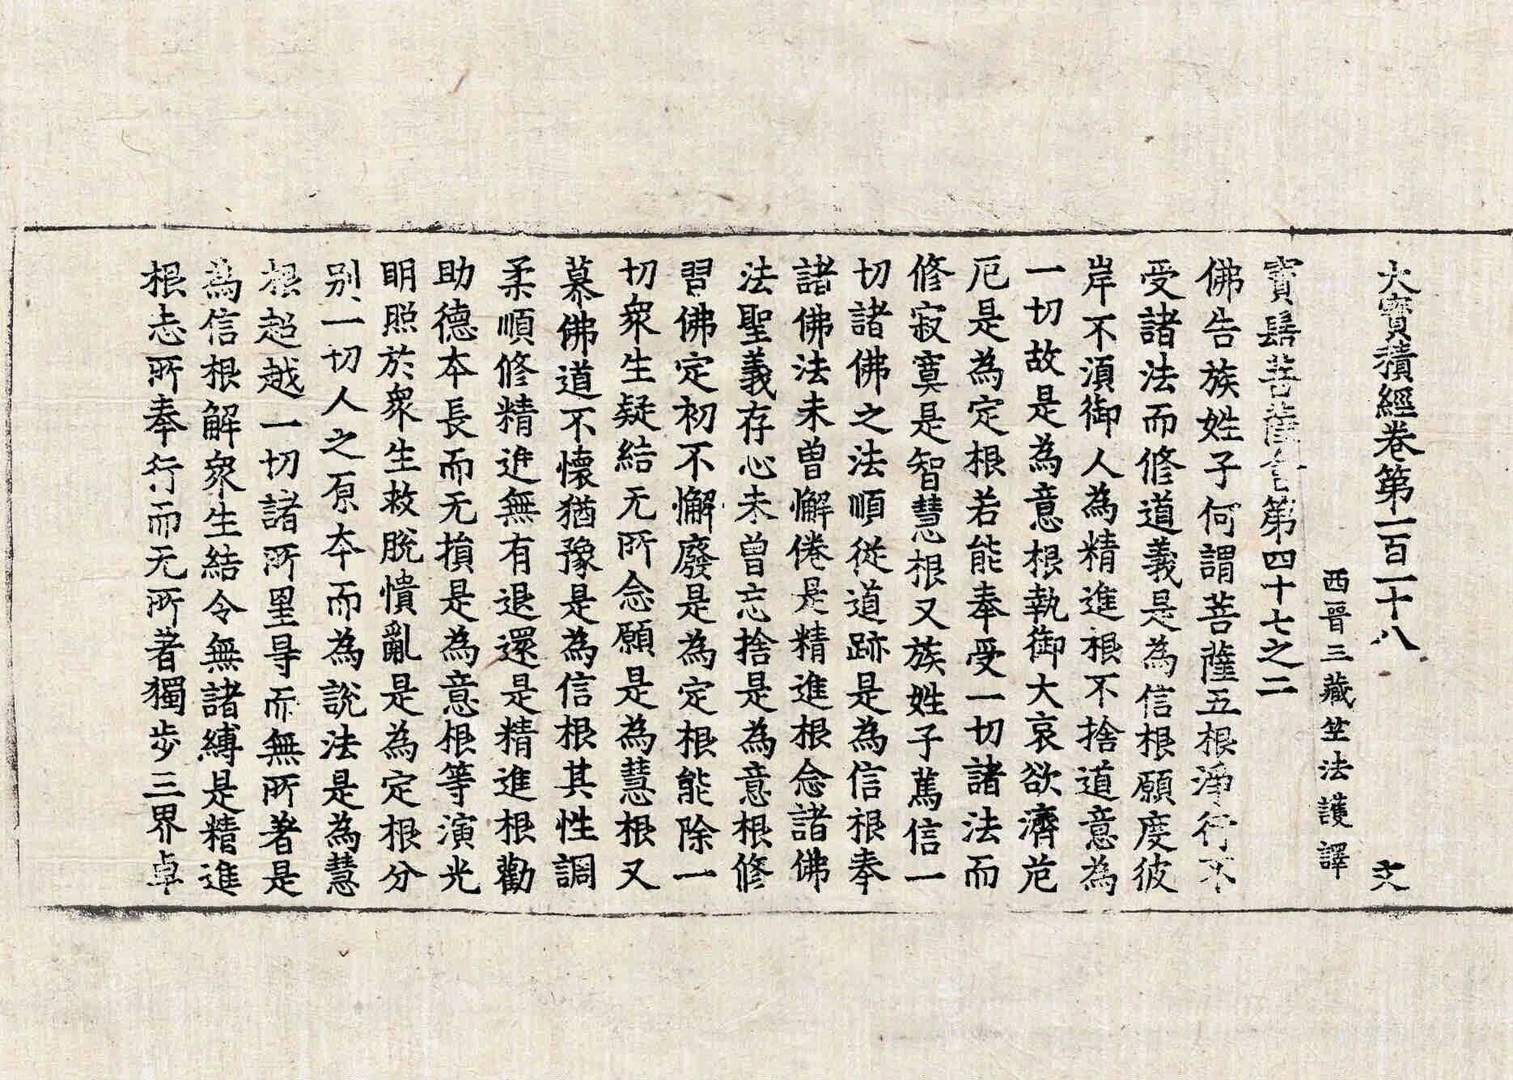 大寶積經卷第一百一十八
西晉三藏竺法護譯
寶髻菩薩會第四十七之二
佛告族姓子何謂菩薩五根淨行不
受諸法而修道義是為信根願度彼
岸不湏御人為精進根不捨道意為
一切故是為意根執御大哀欲濟危
厄是為定根若能奉受一切諸法而
修寂寞是智慧根又族姓子篤信一
切諸佛之法順従道跡是為信根奉
諸佛法未曽懈倦是精進根念諸佛
法聖義存心未曽忘捨是為意根修
習佛定初不懈廢是為定根能除一
切衆生疑結无所念願是為慧根又
慕佛道不懷猶豫是為信根其性調
柔順修精進無有退還是精進根勸
助德夲長而无損是為意根等演光
明照於衆生救脫憒亂是為定根分
別一切人之原夲而為說法是為慧
根超越一切諸所罣㝵而無所著是
為信根解衆生結令無諸縛是精進
根志所奉行而无所著獨步三界卓